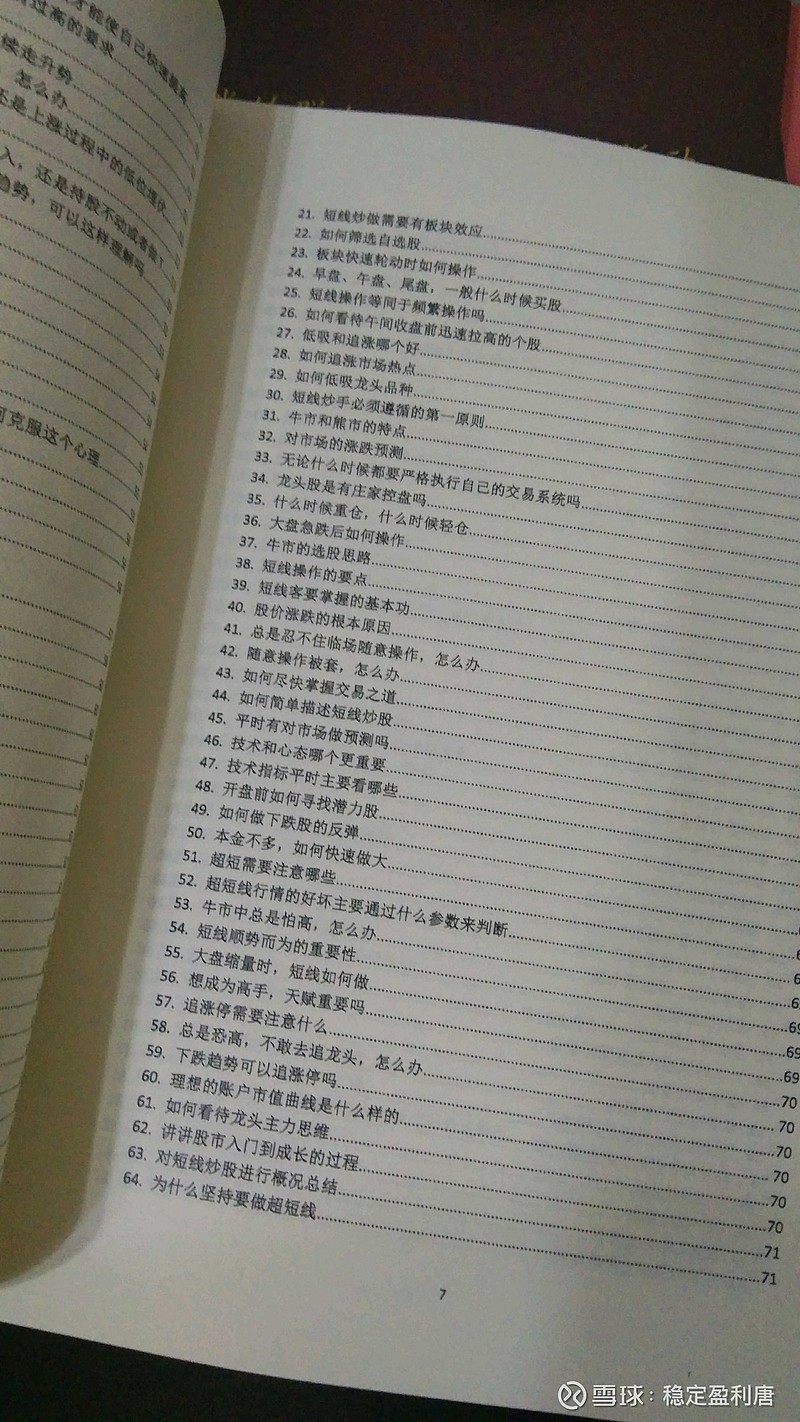 才能使自己快速提高
过高的要求
续走升势
怎么办
还是上涨过程中的低位埋伏
入，还是持股不动或者做T
趋势，可以这样理解吗
何克服这个心理
21. 短线炒做需要有板块效应
22. 如何筛选自选股
23. 板块快速轮动时如何操作
24. 早盘、午盘、尾盘，一般什么时候买股
25. 短线操作等同于频繁操作吗
26. 如何看待午间收盘前迅速拉高的个股
27. 低吸和追涨哪个好
28. 如何追涨市场热点
29. 如何低吸龙头品种
30. 短线炒手必须遵循的第一原则
31. 牛市和熊市的特点
32. 对市场的涨跌预测
33. 无论什么时候都要严格执行自己的交易系统吗
34. 龙头股是有庄家控盘吗
35. 什么时候重仓，什么时候轻仓
36. 大盘急跌后如何操作
37. 牛市的选股思路
38. 短线操作的要点
39. 短线客要掌握的基本功
40. 股价涨跌的根本原因
41. 总是忍不住临场随意操作，怎么办
42. 随意操作被套，怎么办
43. 如何尽快掌握交易之道
44. 如何简单描述短线炒股
45. 平时有对市场做预测吗
46. 技术和心态哪个更重要
47. 技术指标平时主要看哪些
48. 开盘前如何寻找潜力股
49. 如何做下跌股的反弹
50. 本金不多，如何快速做大
51. 超短需要注意哪些
52. 超短线行情的好坏主要通过什么参数来判断
53. 牛市中总是怕高，怎么办
54. 短线顺势而为的重要性
55. 大盘缩量时，短线如何做
56. 想成为高手，天赋重要吗
57. 追涨停需要注意什么
58. 总是恐高，不敢去追龙头，怎么办
59. 下跌趋势可以追涨停吗
60. 理想的账户市值曲线是什么样的
61. 如何看待龙头主力思维
62. 讲讲股市入门到成长的过程
63. 对短线炒股进行概况总结
64. 为什么坚持要做超短线
69
69
69
70
70
70
70
70
70
71
71
7
雪球：稳定盈利唐